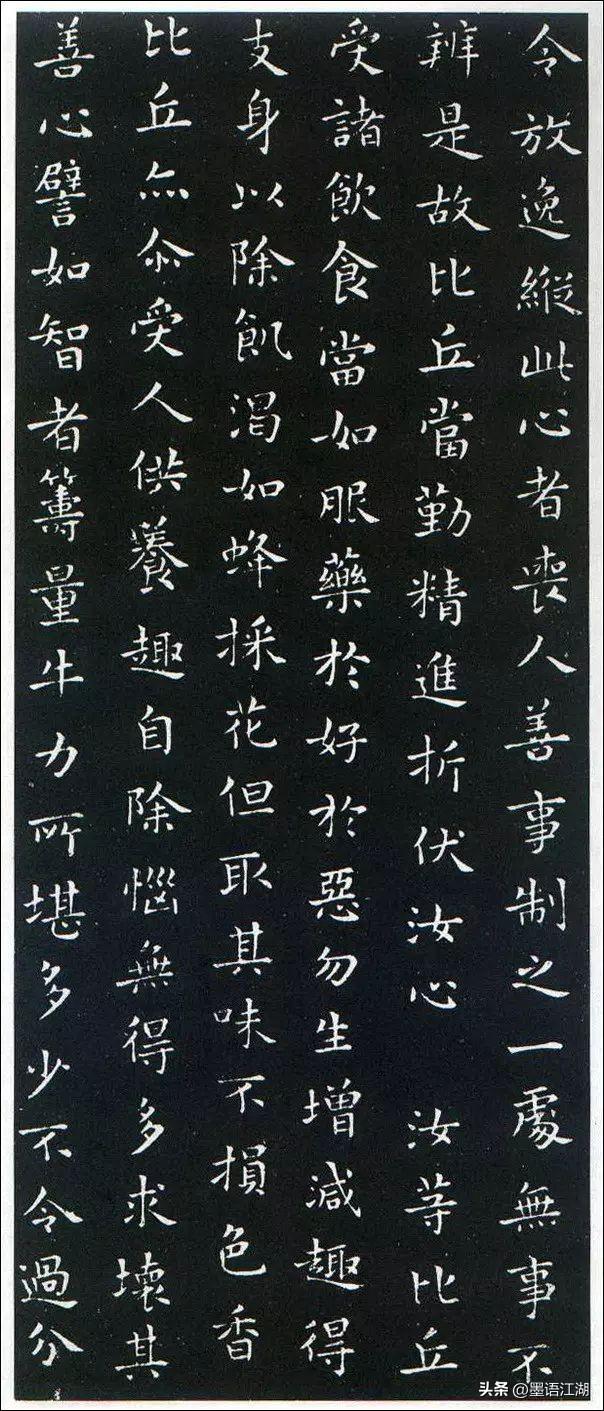 令放逸縱此心者喪人善事制之一處無事不
辨是故比丘當勤精進折伏汝心 汝等比丘
受諸飲食當如服藥於好於惡勿生增減趣得
支身以除飢渴如蜂採花但取其味不損色香
比丘亦尒受人供養趣自除惱無得多求壞其
善心譬如智者籌量牛力所堪多少不令過分
头条 @墨语江湖